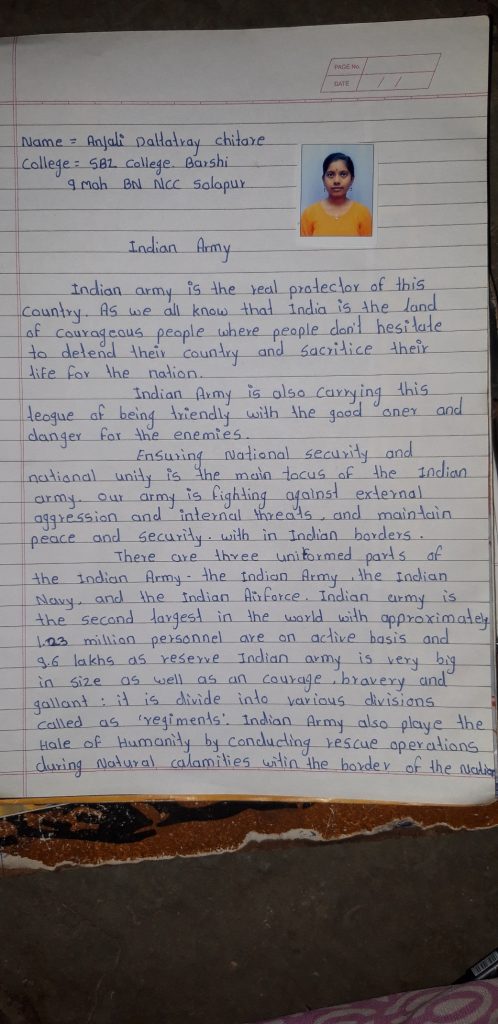 PAGE No.
DATE / /
Name = Anjali Dattatray chitare
College = SBZ College. Barshi
9 mah BN NCC Solapur
Indian Army
Indian army is the real protector of this
Country. As we all know that India is the land
of courageous people where people don't hesitate
to defend their country and sacrifice their
life for the nation.
Indian Army is also carrying this
teogue of being friendly with the good oner and
danger for the enemies.
Ensuring National security and
national unity is the main focus of the Indian
army. our army is fighting against external
aggression and internal threats, and maintain
peace and security. with in Indian borders.
There are three uniformed parts of
the Indian Army - the Indian Army, the Indian
Navy, and the Indian Airforce. Indian army is
the second largest in the world with approximately
1.23 million personnel are on active basis and
9.6 lakhs as reserve Indian army is very big
in size as well as an courage, bravery and
gallant : it is divide into various divisions
called as 'regiments'. Indian Army also playe the
Hale of Humanity by conducting rescue operations
during Natural calamities witin the border of the Nation